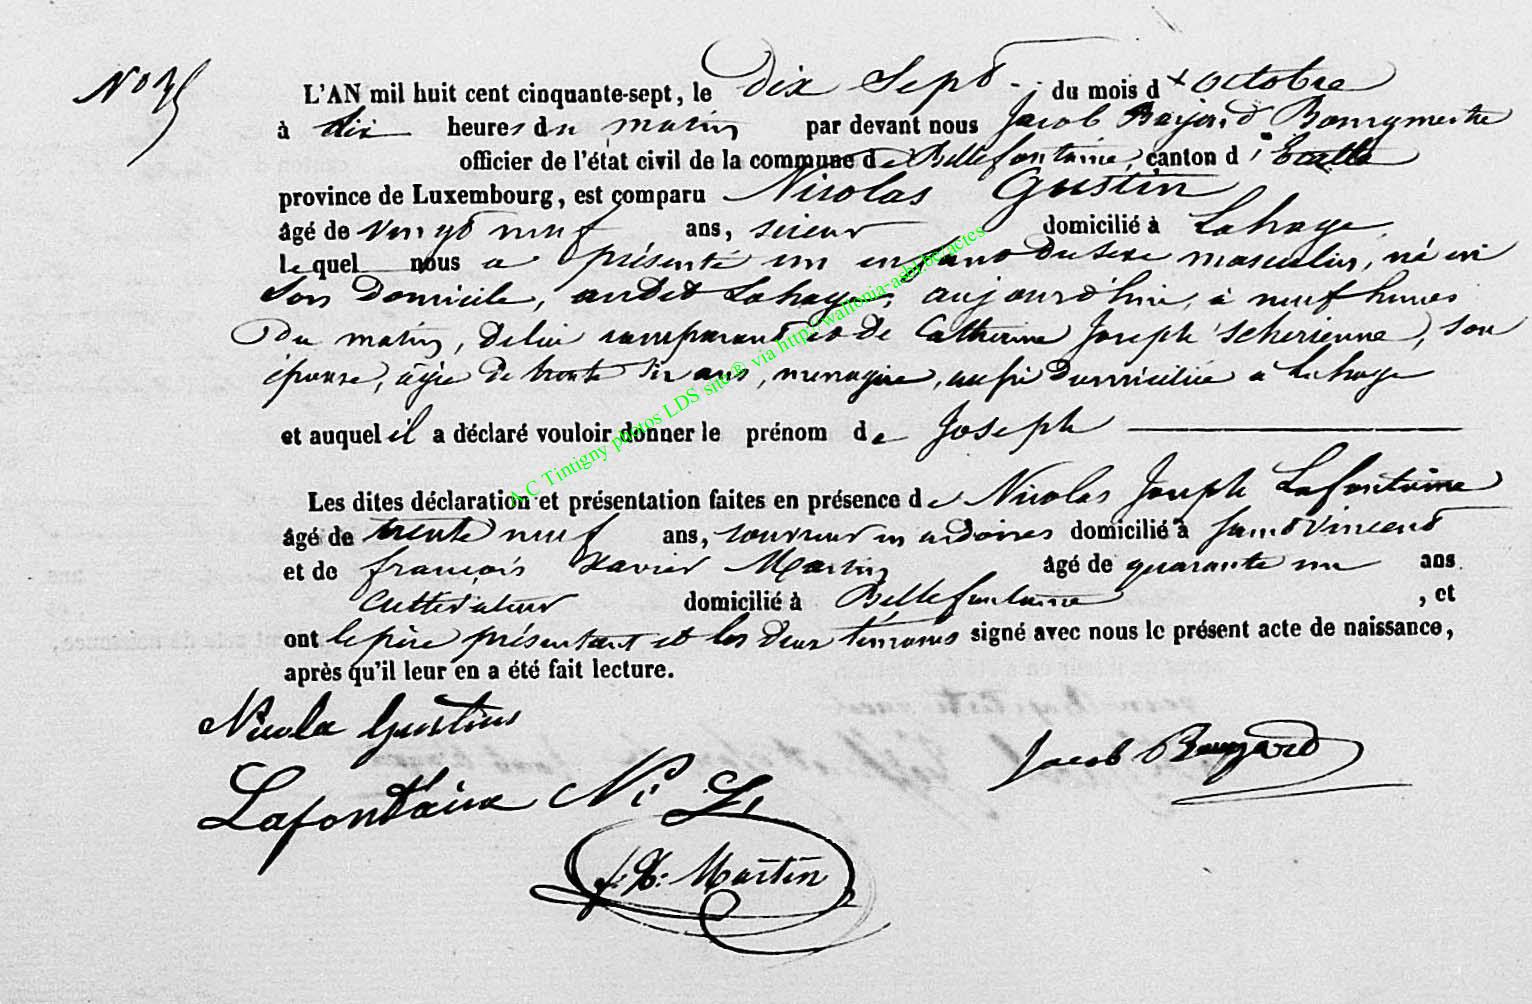 No 35
L'AN mil huit cent cinquante-sept, le dix Sept du mois d'octobre
à dix heures du matin par devant nous Jacob Bayard Bourgmestre
officier de l'état civil de la commune de Bellefontaine, canton d'Etalle
province de Luxembourg, est comparu Nicolas Gustin
âgé de vingt neuf ans, scieur domicilié à Lahage,
lequel nous a présenté un enfant du sexe masculin, né en
Son Domicile, audit Lahage, aujourd'hui, à neuf heures
Du matin, de lui comparant et de Catherine Joseph, Son
épouse, âgée de trente Six ans, menagère, aussi Domiciliée a Lahage
et auquel il a déclaré vouloir donner le prénom de Joseph
Les dites déclaration et présentation faites en présence de Nicolas Joseph Lafontaine
âgé de trente neuf ans, couvreur en ardoises domicilié à Saint Vincent
et de françois Xavier Martin âgé de quarante un ans
Cultivateur domicilié à Bellefontaine, et
ont le père présentant et les deux témoins signé avec nous le présent acte de naissance,
après qu'il leur en a été fait lecture.
Nicola Gustin
Jacob Bayard
Lafontaine Ni J,
f: X: Martin
A.C Tintigny photos LDS site® via http://wallonia-asbl.be/actes